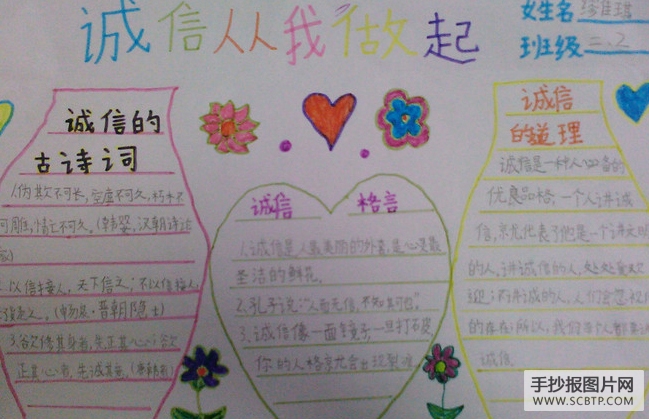 诚信从我做起
女生名
班级 二.2
诚信的
古诗词
1.伪欺不可长,空虚不可久,朽木不
2.以信接人,天下信之;不以信接人,
3.欲修其身者,先正其心;欲
正其心者,先诚其意。
诚信 格言
1.诚信是人最美丽的外套,是心灵最
圣洁的鲜花。
2.孔子说:"人而无信,不知其可也"。
3.诚信像一面镜子,一旦打破
你的人格就会出现裂痕
诚信
的道理
诚信是一种人人必备的
优良品格,一个人讲诚
信,就代表了他是一个讲文明
的人。讲诚信的人,处处受欢
迎;不讲诚的人,人们会忽视他
的存在;所以,我们每个人都要讲
诚信
手抄报图片网
WWW.SCBTP.COM